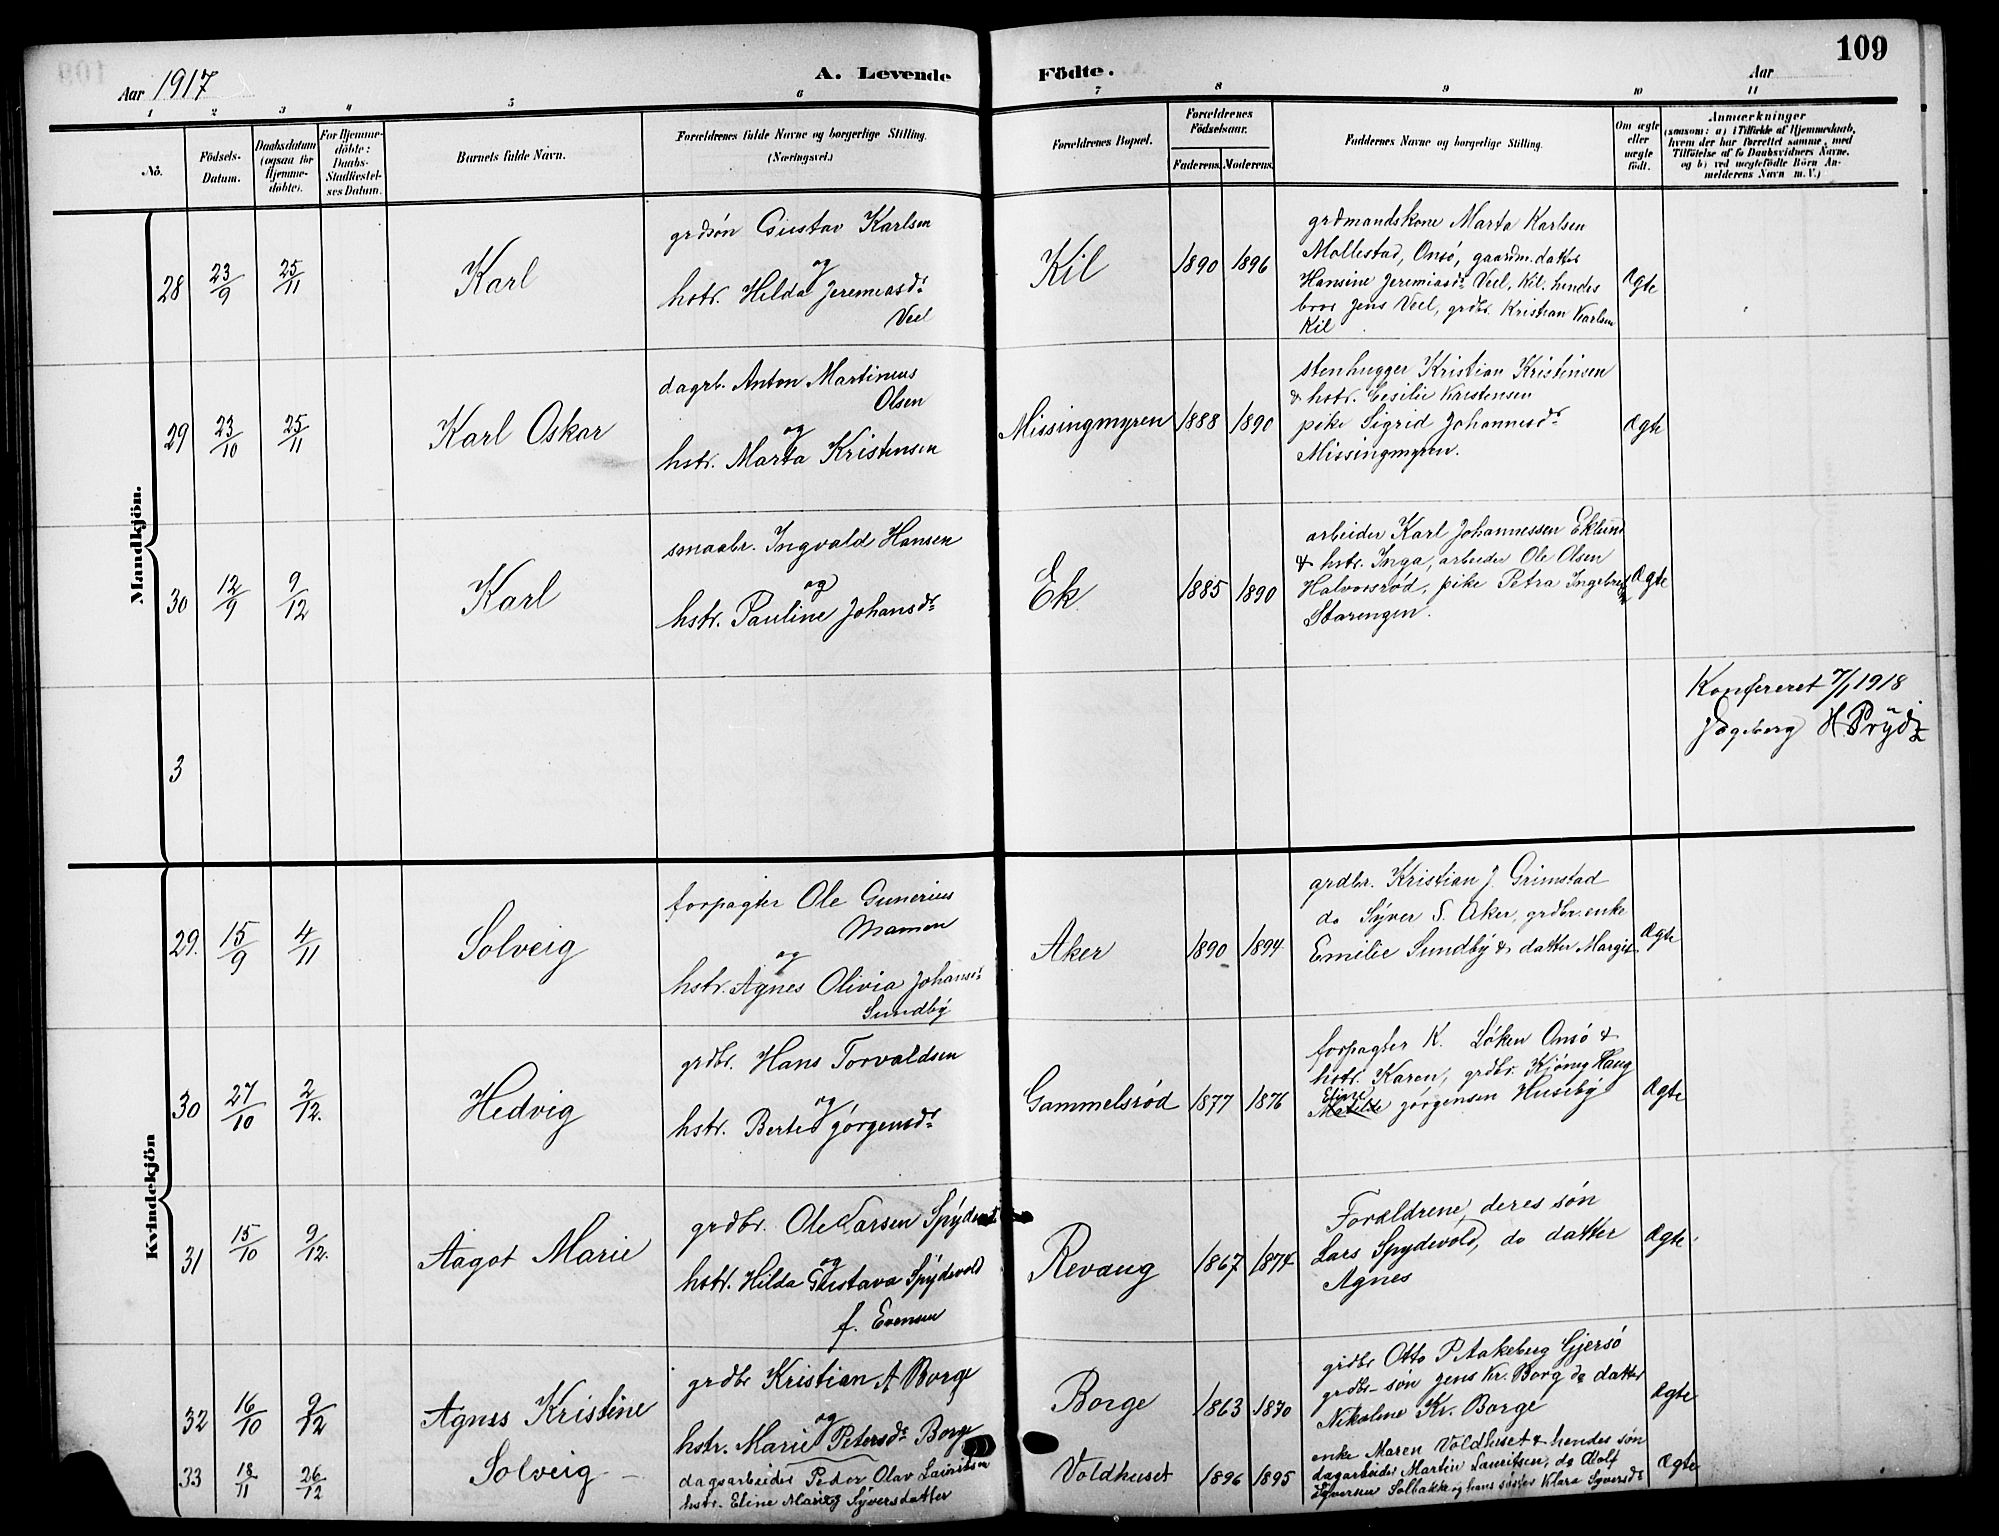 109
Aar 1917
A. Levende
Födte.
Aar
1 2 3 4 5 6 7 8 9 10 11
No.
Födsels-
Datum.
Daabsdatum
(ogsaa for
Hjemme-
döbte).
For Hjemme-
döbte:
Daabs-
Stadfæstel-
ses Datum.
Barnets fulde Navn.
Forældrenes fulde Navne og borgerlige Stilling.
(Næringsvei.)
Forældrenes Bopæl.
Forældrenes
Födselsaar.
Faderens. Moderens.
Faddernes Navne og borgerlige Stilling.
Om ægte
eller
uægte
födt.
Anmærkninger
(saasom: a) i Tilfælde af Hjemmedaab,
hvem der har forrettet samme, med
Tilföielse af to Daabsvidners Navne,
og b) ved uægtefödte Börn An-
melderens Navn m. V.)
Mandkjön.
28
23/9
25/11
Karl
grdsön Gustav Karlsen
og
hstr. Hilda Jeremiasdr
Veel
Kil
1890 1896
grdmandskone Marta Karlsen
Mollestad, Onsö, gaardm.datter
Hansine Jeremiasdr Veel, Kil. hendes
bror Jens Veel, grdbr. Kristian Karlsen
Kil
Ægte
29
23/10
25/11
Karl Oskar
dagrb. Anton Martinius
Olsen
og
hstr. Marta Kristensen
Missingmyren
1888 1890
stenhugger Kristian Kristensen
& hstr. Cesilie Karstensen
pike Sigrid Johannesdr
Missingmyren.
Ægte
30
12/9
9/12
Karl
smaabr. Ingvald Hansen
og
hstr. Pauline Johansdr
Ek
1885 1890
arbeider Karl Johannessen Eklund
& hstr. Inga, arbeider Ole Olsen
Halvorsröd, pike Petra
Starengen.
Ægte
3
Konfereret 7/1 1918
H Prydz
Kvindekjön
29.
15/9
4/11
Solveig
forpagter Ole Gunerius
Mamen
og
hstr. Agnes Olivia Johansdr
Sundby
Aker
1890 1894
grdbr. Kristian J. Grimstad
do Syver S. Aker, grdbr.enke
Emilie Sundby & datter Margit.
Ægte
30
27/10
2/12.
Hedvig
grdbr. Hans Torvaldsen
og
hstr. Berte Jörgensdr
Gammelsröd
1877 1876
forpagter K. Löken Onsö &
hstr. Karen, grdbr. Kjönig Haug
Eline
Matilde Jörgensen Huseby
Ægte
31
15/10
9/12.
Aagot Marie
grdbr. Ole Larsen
og
hstr. Hilda Gustava Spydevold
f. Evensen
Revaug
1867 1874
Forældrene, deres sön
Lars Spydevold, do datter
Agnes
Ægte
32
16/10
9/12
Agnes Kristine
grdbr Kristian A Borge
og
hstr. Marie Petersdr Borge
Borge
1863 1870
grdbr Otto P Aakeberg Gjersö
grdbr-sön Jens Kr. Borg do datter
Nikoline Kr. Borge
Ægte
33
18/11
26/12
Solveig
dagsarbeider Peder Olav Lauritsen
hstr. Eline Marie Syversdatter
Voldhuset
1896 1895
enke Maren Voldhuset & hendes sön
dagarbeider Martin Lauritsen, do Adolf
Syversen Solbakke og hans söster Klara Syversdr
Ægte